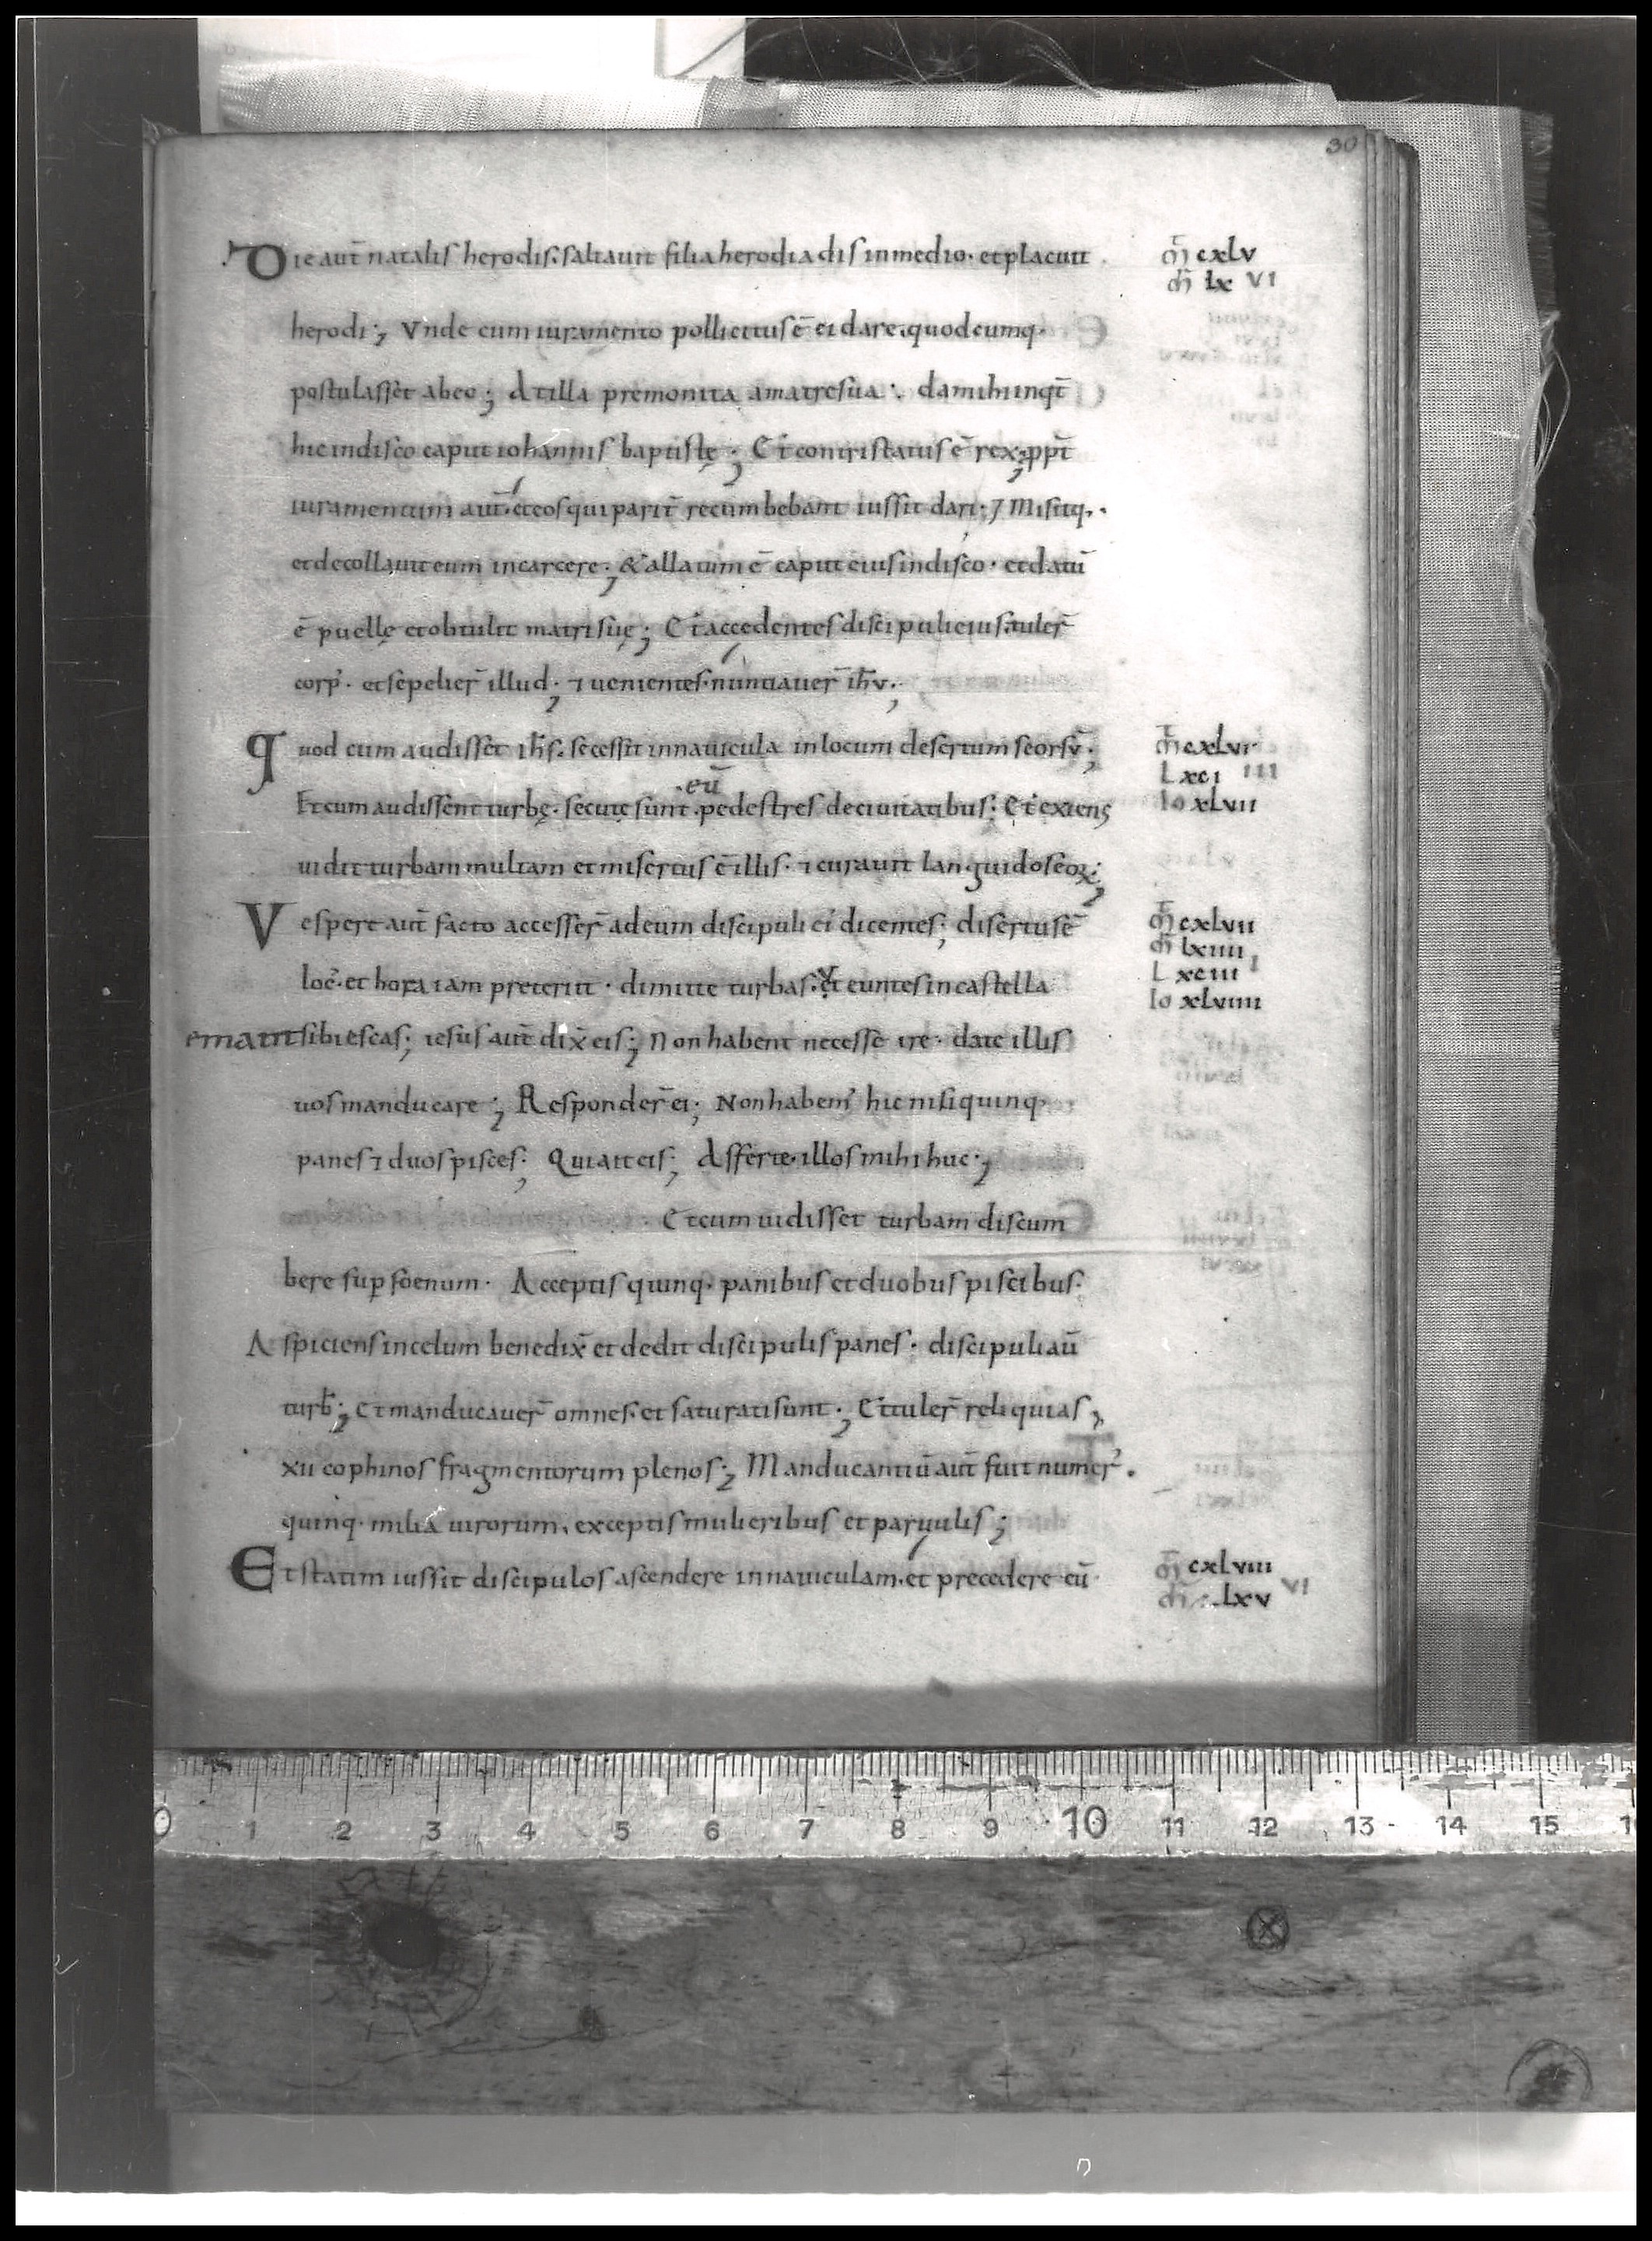 30
Die aut̄ natalis herodis. saltauit filia herodiadis in medio. et placuit
m̄ cxlv
m̄ lx VI
herodi; Vnde cum iuramento pollicitus ē ei dare. quodcumq·
postulasset ab eo; At illa premonita a matre sua. da mihi inqt̄
hic in disco caput iohannis baptistę; Et contristatus ē rex; ꝓpt̄
iuramentum aut̄. et eos qui parit̄ recumbebant iussit dari; Misitq·
et decollauit eum in carcere; & allatum ē caput eius in disco. et datū
ē puellę et obtulit matri suę; Et accedentes discipuli eius. tuler̄
corp᾿. et sepelier̄ illud; ⁊ uenientes. nuntiauer̄ ih̄v;
quod cum audisset ih̄s. secessit in nauicula in locum desertum seorsv̄;
m̄ cxlvi
L xci III
Io xlvii
eū
Et cum audissent turbę. secutę sunt. pedestres de ciuitatibus; Et exiens
uidit turbam multam et misertus ē illis. ⁊ curauit languidos eoꝝ;
Vespere aut̄ facto accesser̄ ad eum discipuli ei᾿ dicentes; disertus ē
m̄ cxlvii
m̄ lxiiii
L xciii I
Io xlviiii
loc᾿. et hora iam preteriit. dimitte turbas. vt euntes in castella
emant sibi escas; iesus aut̄ dix̄ eis; Non habent necesse ire. date illis
uos manducare; Responder̄ ei; Non habem᾿ hic nisi quinq·
panes ⁊ duos pisces; Qui ait eis; Afferte. illos mihi huc;
Et cum uidisset turbam discum
bere suꝑ foenum. Acceptis quinq· panibus et duobus piscibus.
Aspiciens in celum benedix̄ et dedit discipulis panes. discipuli aū
turb̄; Et manducauer̄ omnes. et saturati sunt; Et tuler̄ reliquias,
xii cophinos fragmentorum plenos; Manducantiū aut̄ fuit numer᾿.
quinq· milia uirorum, exceptis mulieribus et paruulis;
Et statim iussit discipulos ascendere in nauiculam. et precedere eū
m̄ cxlviii
m̄ lxv VI
0 1 2 3 4 5 6 7 8 9 10 11 12 13 14 15